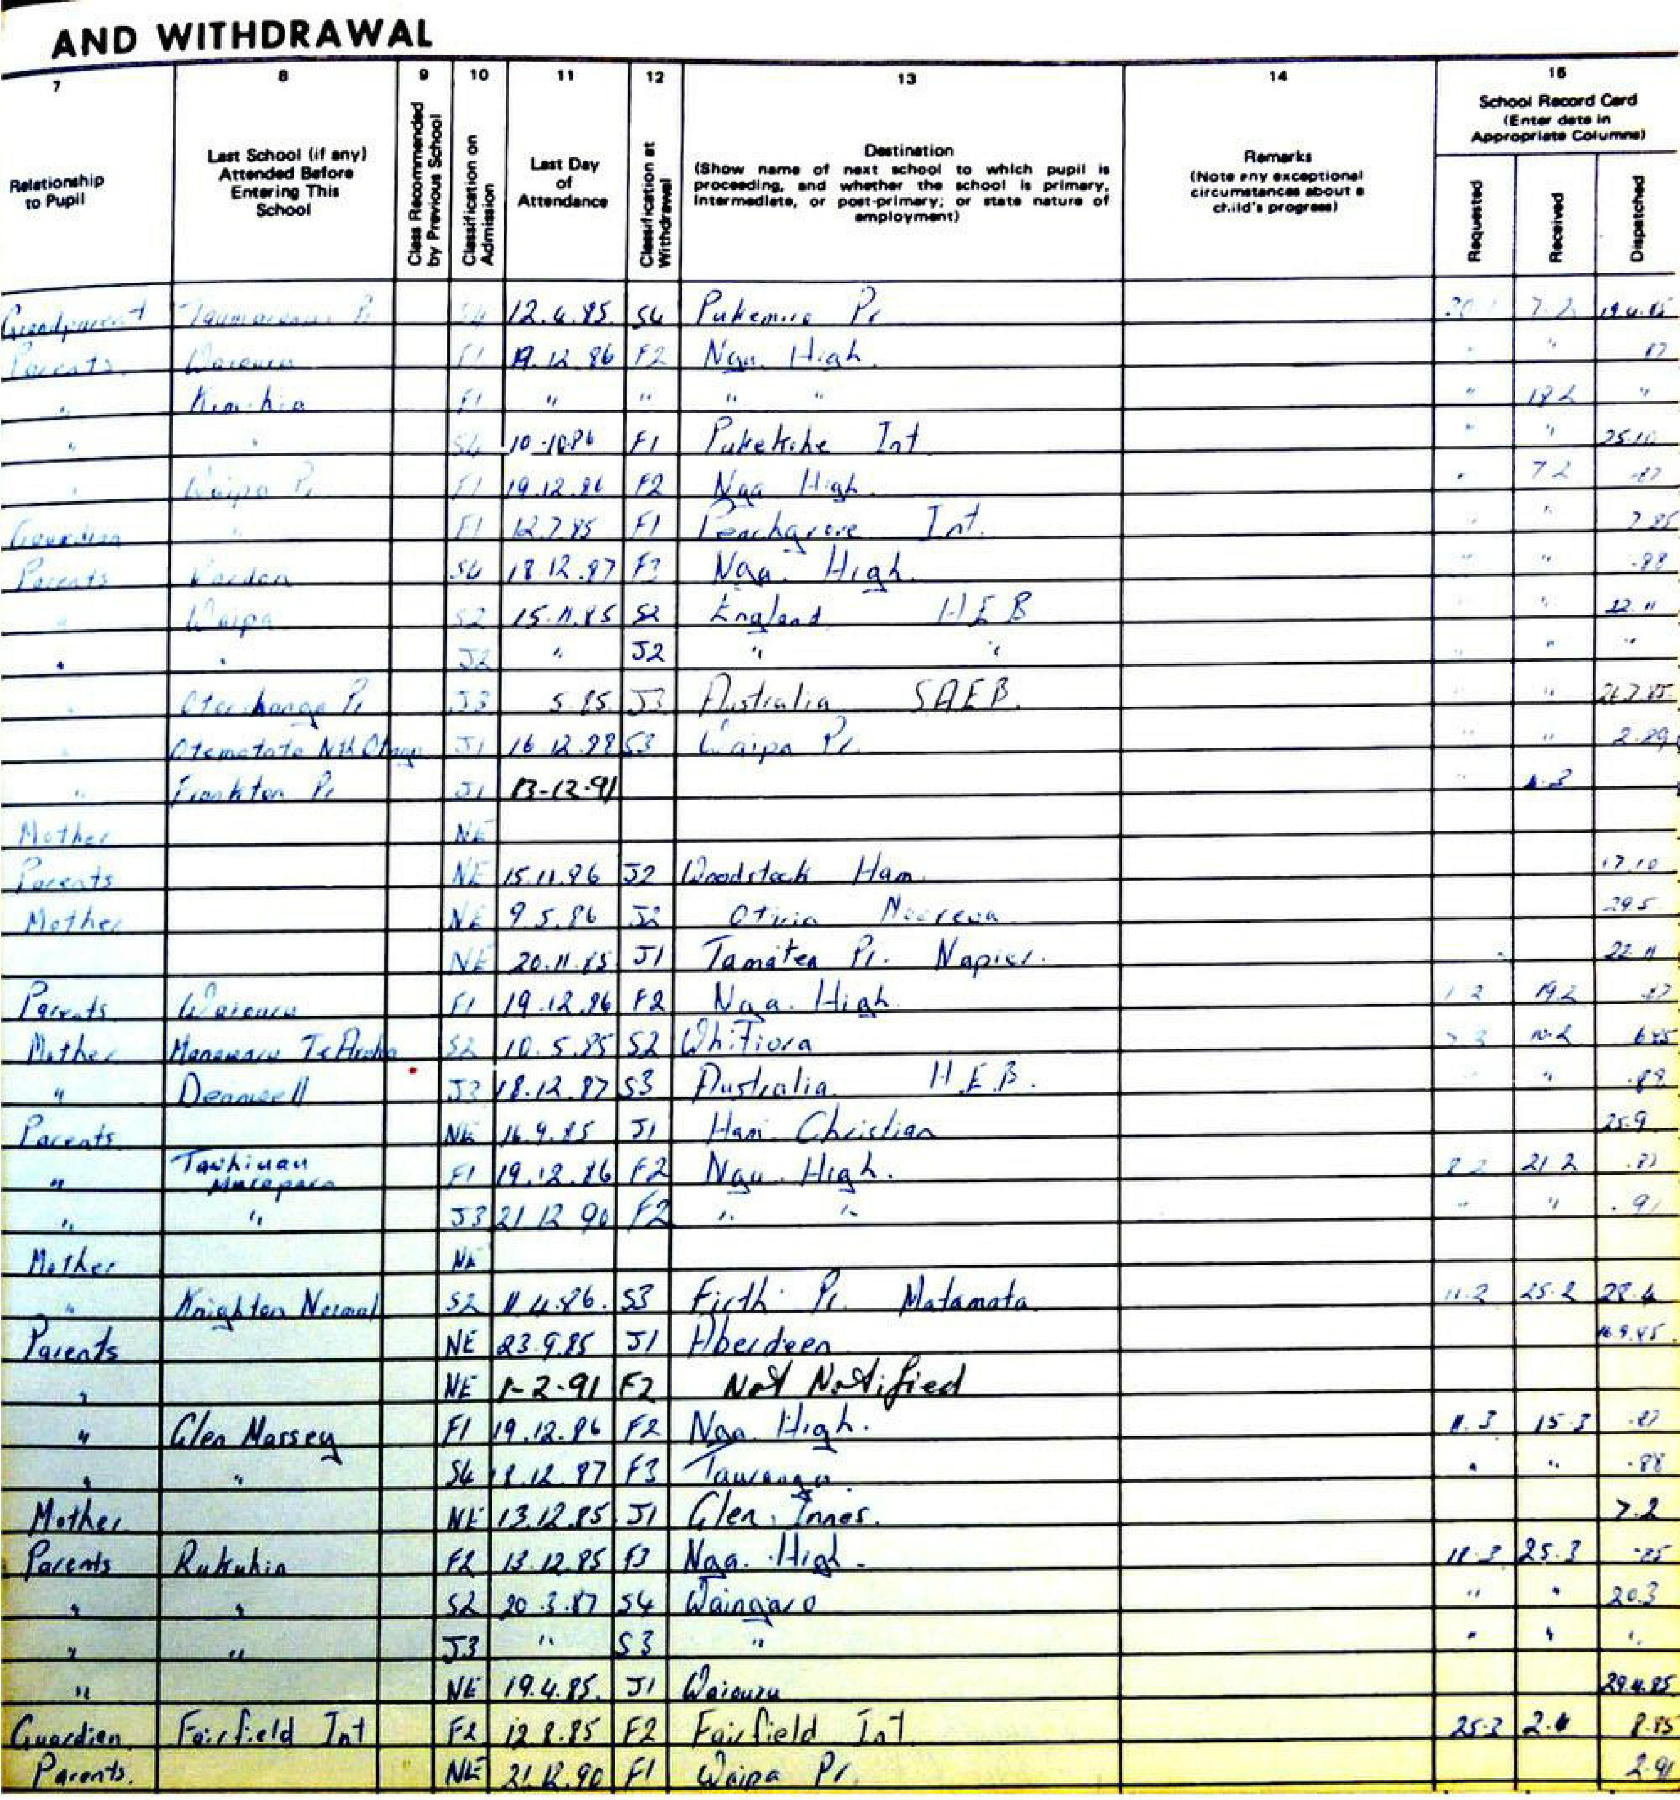 AND WITHDRAWAL
7 8 9 10 11 12 13 14 15
Relationship to Pupil
Last School (if any) Attended Before Entering This School
Class Recommended by Previous School
Classification on Admission
Last Day of Attendance
Classification at Withdrawal
Destination (Show name of next school to which pupil is proceeding, and whether the school is primary, intermediate, or post-primary; or state nature of employment)
Remarks (Note any exceptional circumstances about a child's progress)
School Record Card (Enter date in Appropriate Columns)
Requested Received Dispatched
Grandparent Pr S4 12.4.85. S4 Pukemiro Pr 7.2 19.4.85
Parents Waiouru F1 19.12.86 F2 Nga. High. " " 87
" F1 " " " " " 18 2 "
" " S4 10-10.86 F1 Pukekohe Int " " 25.10
" Waipa Pr F1 19.12.86 F2 Nga High. " 7 2 -87
Guardian " F1 12.7.85 F1 Peachgrove Int. " " 7.85
Parents Vardon S4 18.12.87 F3 Nga. High. " " -88
" Waipa S2 15.11.85 S2 England H E B " " 22.11
" " J2 " J2 " " " " "
" Otorohanga Pr J3 5.85. J3 Australia SAEB. " " 26.7.85
" Otematata Nth Otago J1 16.12.88 S3 Waipa Pr. " " 2.89
" Frankton Pr J1 13-12-91 "
Mother NE
Parents NE 15.11.86 J2 Woodstock Ham. 17.10
Mother NE 9.5.86 J2 Otiria Moerewa 29.5
NE 20.11.85 J1 Tamatea Pr. Napier. 22.11
Parents Waiouru F1 19.12.86 F2 Nga. High 1 2 19.2 -87
Mother Manawaru Te Aroha S2 10.5.85 S2 Whitiora
" Deanwell J3 18.12.87 S3 Australia H.E.B. " .88
Parents NE 16.9.85 J1 Ham. Christian 25.9
" Tawhiuau Murupara F1 19.12.86 F2 Nga. High. 8 2 21 2 .87
" " J3 21 12 90 F2 " " " " . 91
Mother NE
" Knighton Normal S2 11.4.86. S3 Firth Pr. Matamata 11.2 25.2 28.4
Parents NE 23.9.85 J1 Aberdeen
" NE 1-2-91 F2 Not Notified
" Glen Massey F1 19.12.86 F2 Nga. High. 11.3 15.3 -87
" " S4 18.12.87 F3 Tauranga " " -88
Mother NE 13.12.85 J1 Glen Innes. 7.2
Parents Rukuhia F2 13.12.85 F3 Nga. High. 18.3 25.3 -85
" " S2 20.3.87 S4 Waingaro " " 20.3
" " J3 " S3 " " " "
" NE 19.4.85. J1 Waiouru 29.4.85
Guardian Fairfield Int F2 12.8.85 F2 Fairfield Int 25.3 8.85
Parents. NE 21.12.90 F1 Waipa Pr. 2.91